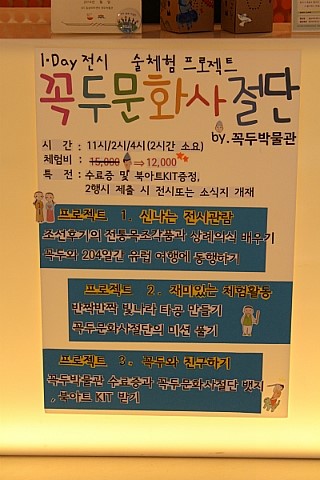 1·Day 전시 술체험 프로젝트
꼭두문화사절단
by. 꼭두박물관
시 간 : 11시/2시/4시(2시간 소요)
체험비 : 15,000 ⇒ 12,000
특 전 : 수료증 및 북아트KIT증정,
2행시 제출 시 전시또는 소식지 개재
프로젝트 1. 신나는 전시관람
조선후기의 전통목조각품과 상례의식 배우기
꼭두와 204일간 유럽 여행에 동행하기
프로젝트 2. 재미있는 체험활동
반짝반짝 빛나라 타공 만들기
꼭두문화사절단의 미션 풀기
프로젝트 3. 꼭두와 친구하기
꼭두박물관 수료증과 꼭두문화사절단 뱃지
, 북아트 KIT 받기